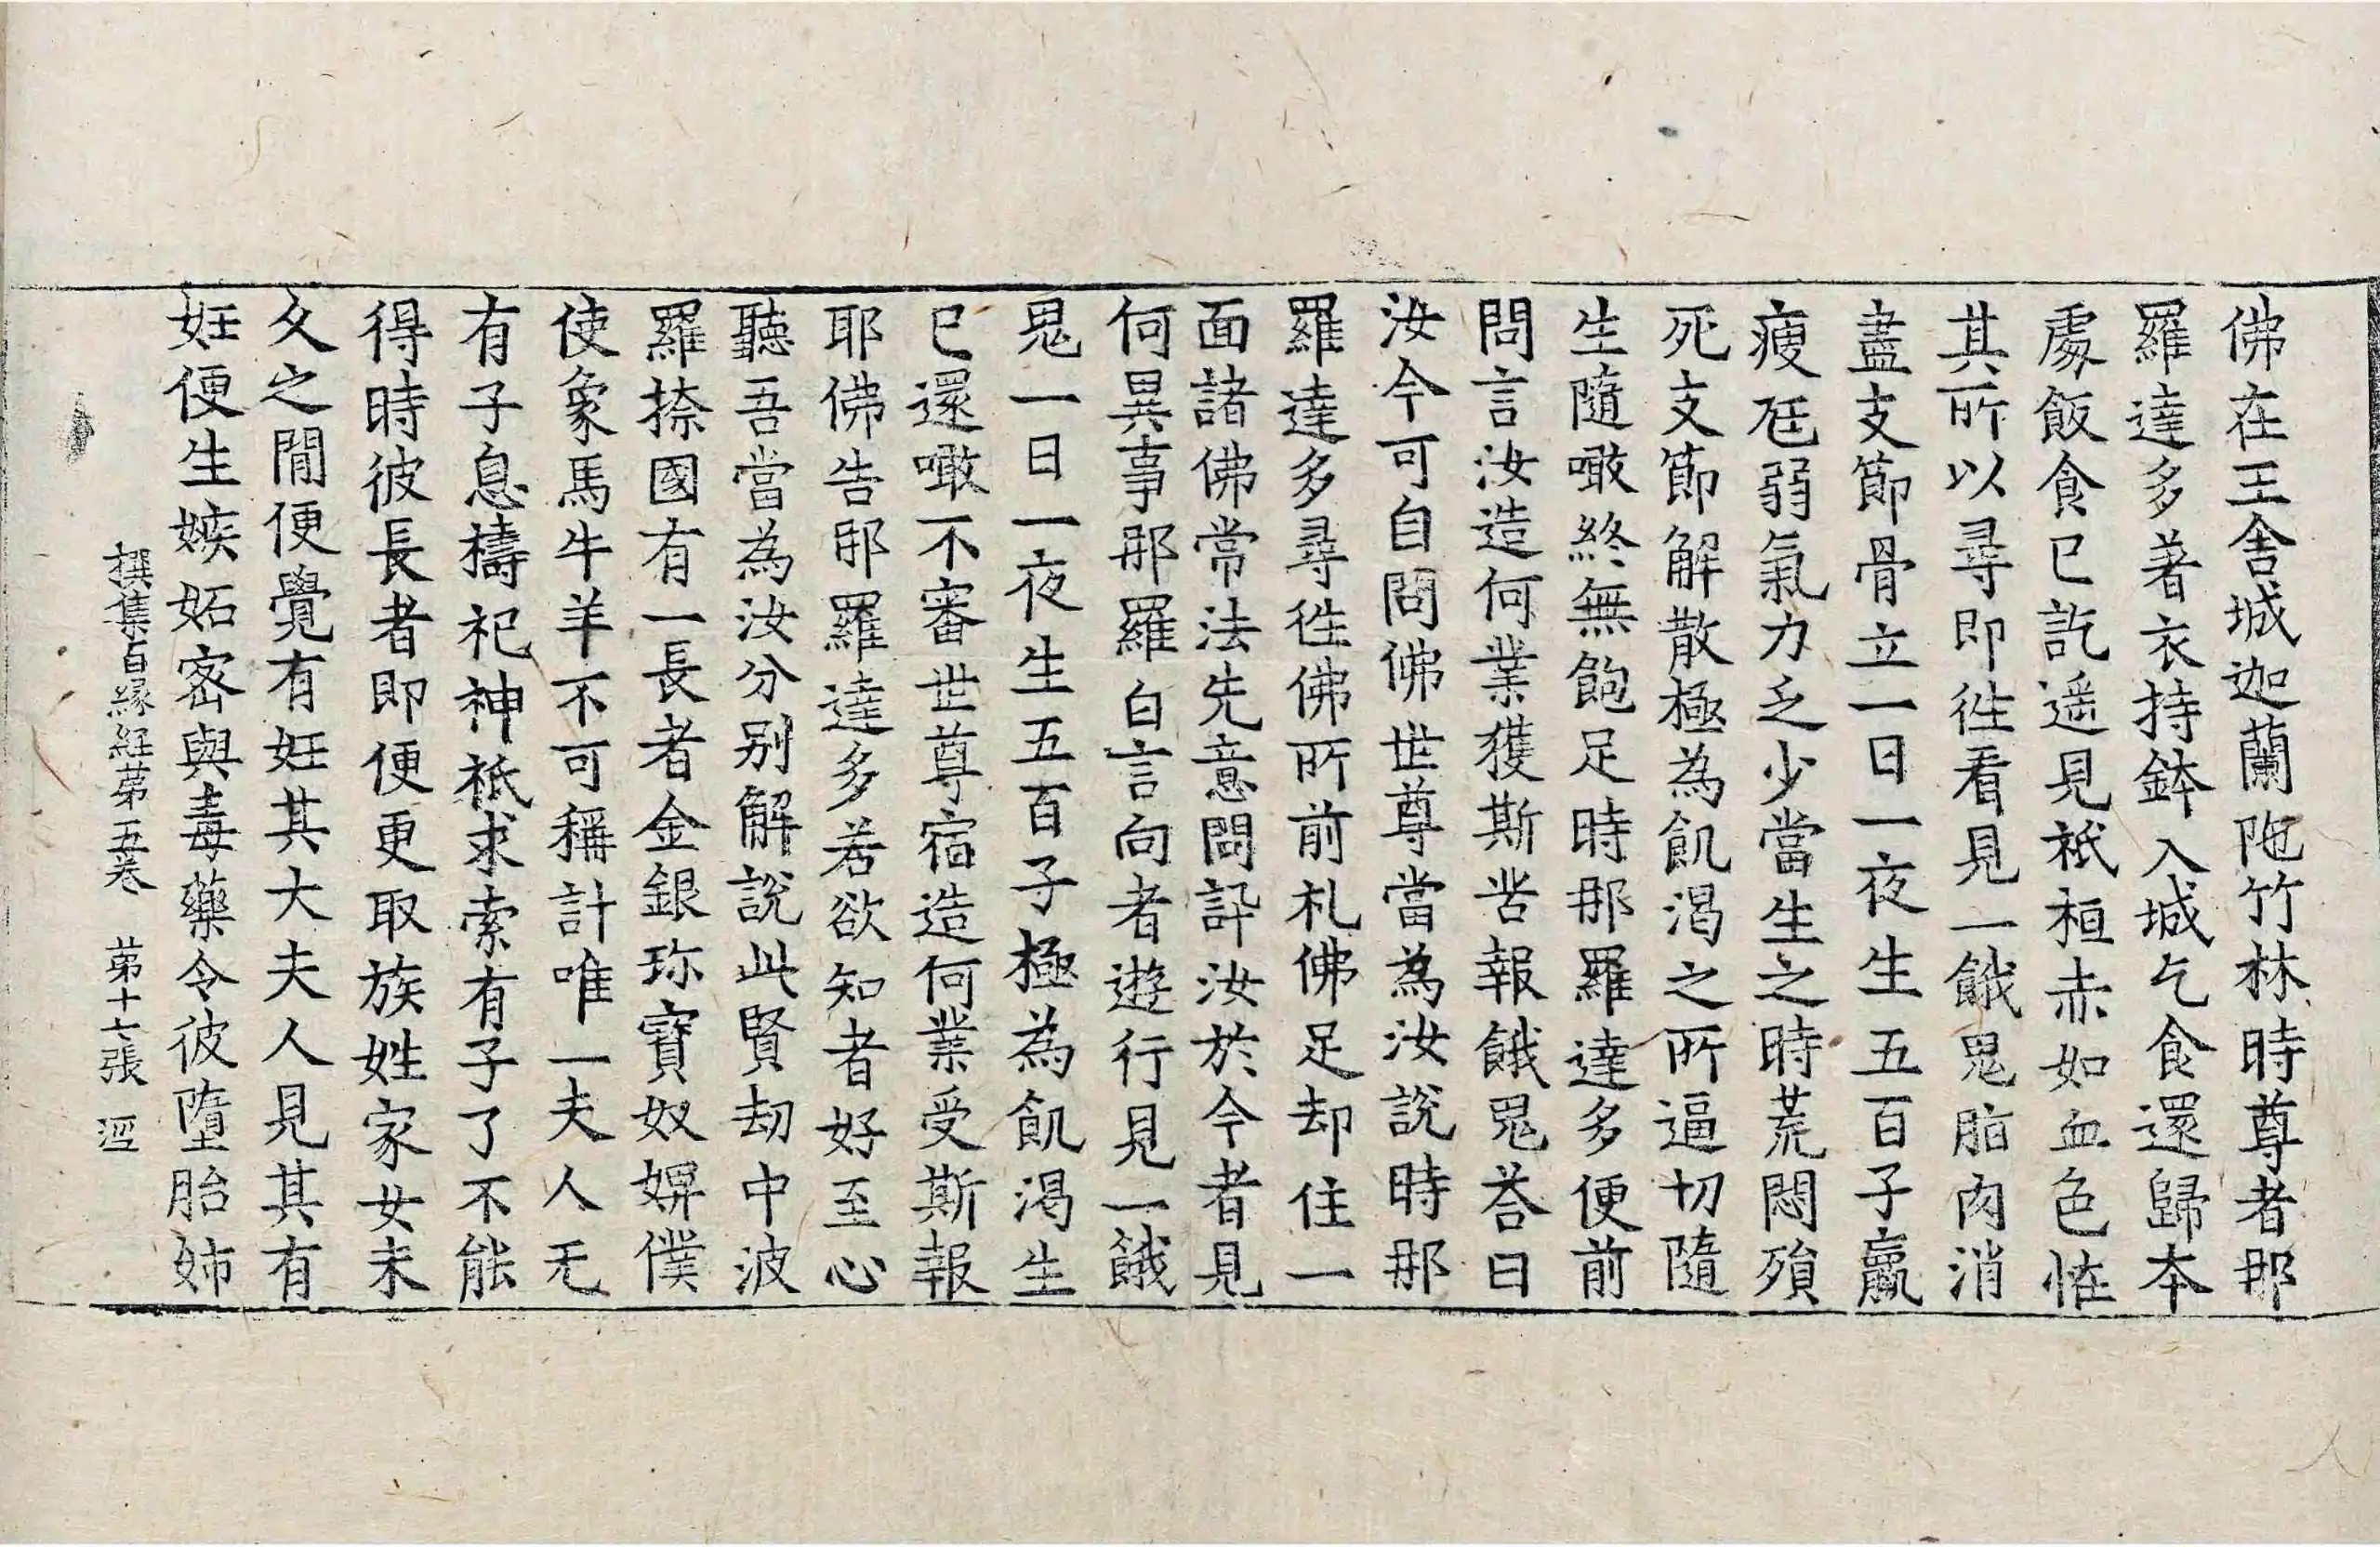 佛在王舍城迦蘭陁竹林時尊者那
羅達多著衣持鉢入城乞食還歸本
處飯食已訖遥見祇桓赤如血色怪
其所以尋即徃看見一餓鬼脂肉消
盡支節骨立一日一夜生五百子羸
瘦尪弱氣力乏少當生之時荒悶殞
死支節解散極為飢渴之所逼切隨
生隨噉終無飽足時那羅達多便前
問言汝造何業獲斯苦報餓鬼荅曰
汝今可自問佛世尊當為汝說時那
羅達多尋徃佛所前礼佛足却住一
面諸佛常法先意問訊汝於今者見
何異事那羅白言向者遊行見一餓
鬼一日一夜生五百子極為飢渴生
已還噉不審世尊宿造何業受斯報
耶佛告那羅達多若欲知者好至心
聽吾當為汝分別解說此賢劫中波
羅捺國有一長者金銀珎寶奴婢僕
使象馬牛羊不可稱計唯一夫人无
有子息禱祀神祇求索有子了不能
得時彼長者即便更取族姓家女未
久之間便覺有妊其大夫人見其有
妊便生嫉妬密與毒藥令彼墮胎姉
撰集百緣經第五卷 第十六張 逕